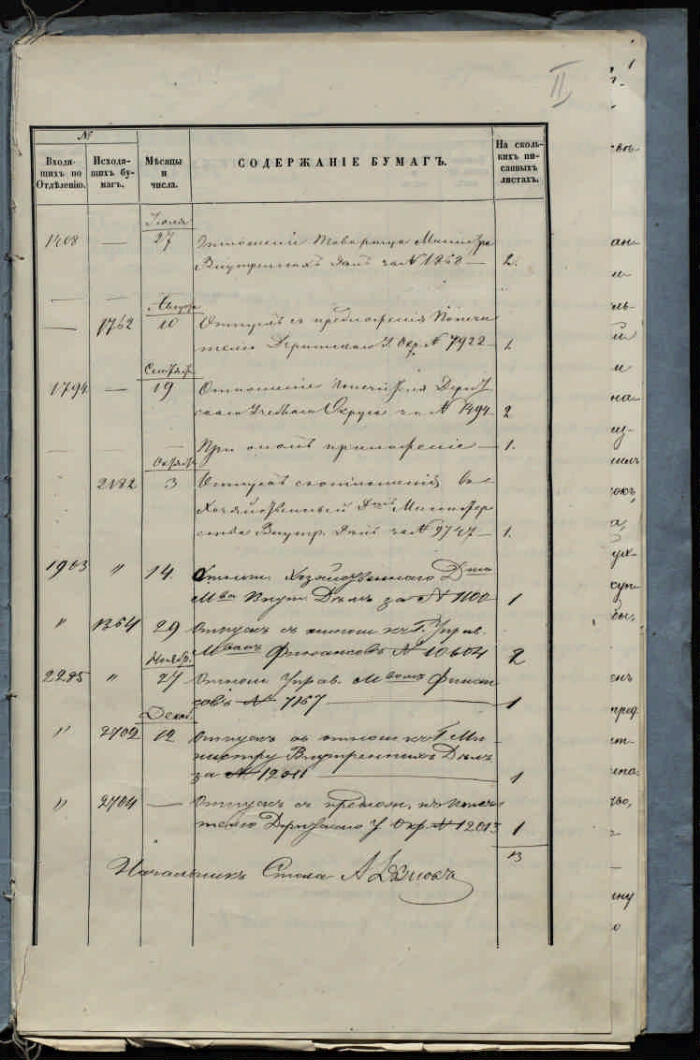 II
№
Входящихъ по Отдѣленію.
Исходящихъ бумагъ.
Мѣсяцы и числа.
СОДЕРЖАНІЕ БУМАГЪ.
На сколькихъ писанныхъ листахъ.
Іюля
1408 — 27 Отношеніе Товарища Министра
Внутреннихъ Дѣлъ за № 1868 — 2.
Августа
— 1762 10 Отпускъ съ предложенія Попечи
телю Дерптскаго У. Окр. № 7922 — 1.
Сентября
1794 — 19 Отношеніе Попечителя Дерпт
скаго Учебнаго Округа за № 1494 2
При ономъ приложеніе — 1.
Октября
2182 3 Отпускъ съ отношенія въ
Хозяйственный Д-тъ Министер
ства Внутр. Дѣлъ за № 9747 — 1.
1903 " 14. Отнош. Хозяйственнаго Дта
Мва Внут. Дѣлъ за № 1100 1
" 29 Отпускъ съ отнош. къ Г. Управ.
Мвомъ Финансовъ № 10604 2
Ноябр.
2285 " 27 Отнош Управ. Мвомъ Финан
совъ № 7167 — 1
Декаб.
" 2702 12 Отпускъ съ отнош къ Г. Ми
нистру Внутреннихъ Дѣлъ
за № 12011 1
" 2704 — Отпускъ съ предлож. къ Попеч
телю Дерптскаго У. Окр № 12013 1
13
Начальникъ Стола